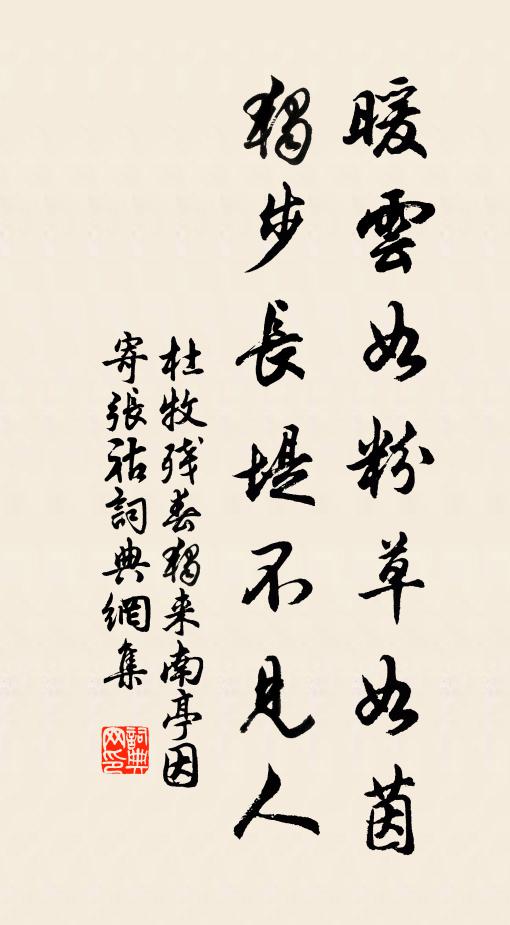 暖雲如粉草如茵
獨步長堤不見人
杜牧殘春獨来南亭因
寄張祜詞典網集
詞典
网印